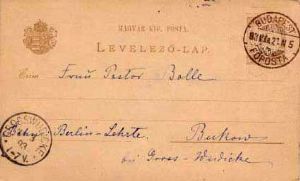 MAGYAR KIR. POSTA.
LEVELEZŐ-LAP.
BUDAPEST
FŐPOSTA
Czim: Frau Pastor Bolle
Bahn Berlin-Lehrte
Buckow
bei Gross-Wudicke